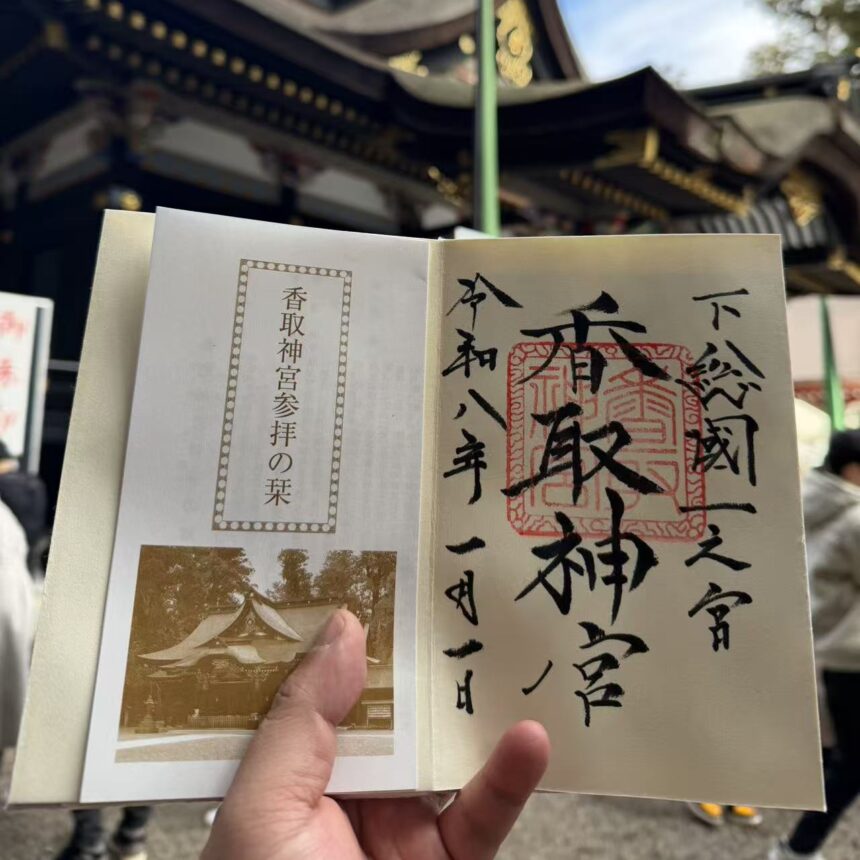 香取神宮参拝の栞
下総國一之宮
香取神宮
令和八年一月一日